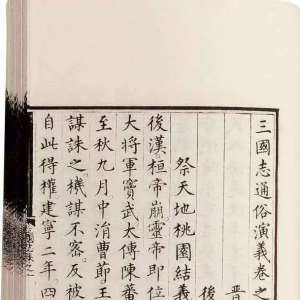 三國志通俗演義卷之
晉
後
祭天地桃園結義
後漢桓帝崩靈帝即位
大將軍竇武太傅陳蕃
至秋九月中涓曹節王
謀誅之機謀不密反被
自此得權建寧二年四